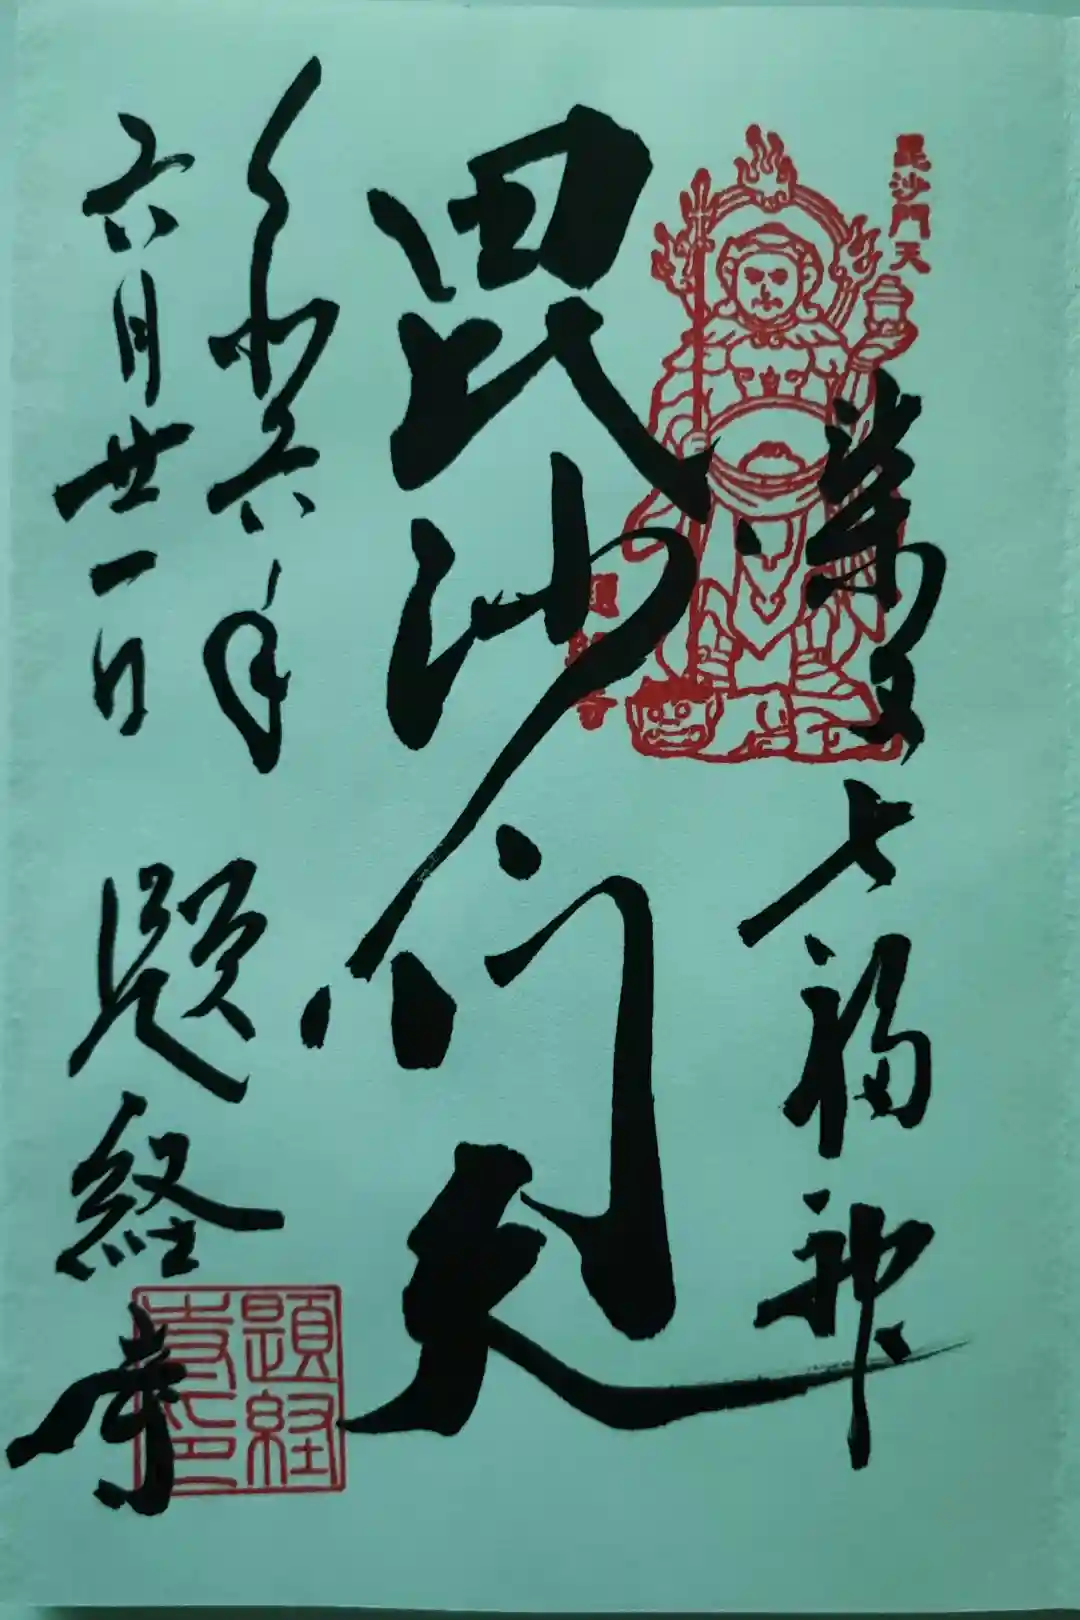 毘沙門天
柴又七福神
毘沙門天
題経寺
令和六年
六月廿一日
題経寺
題経寺印